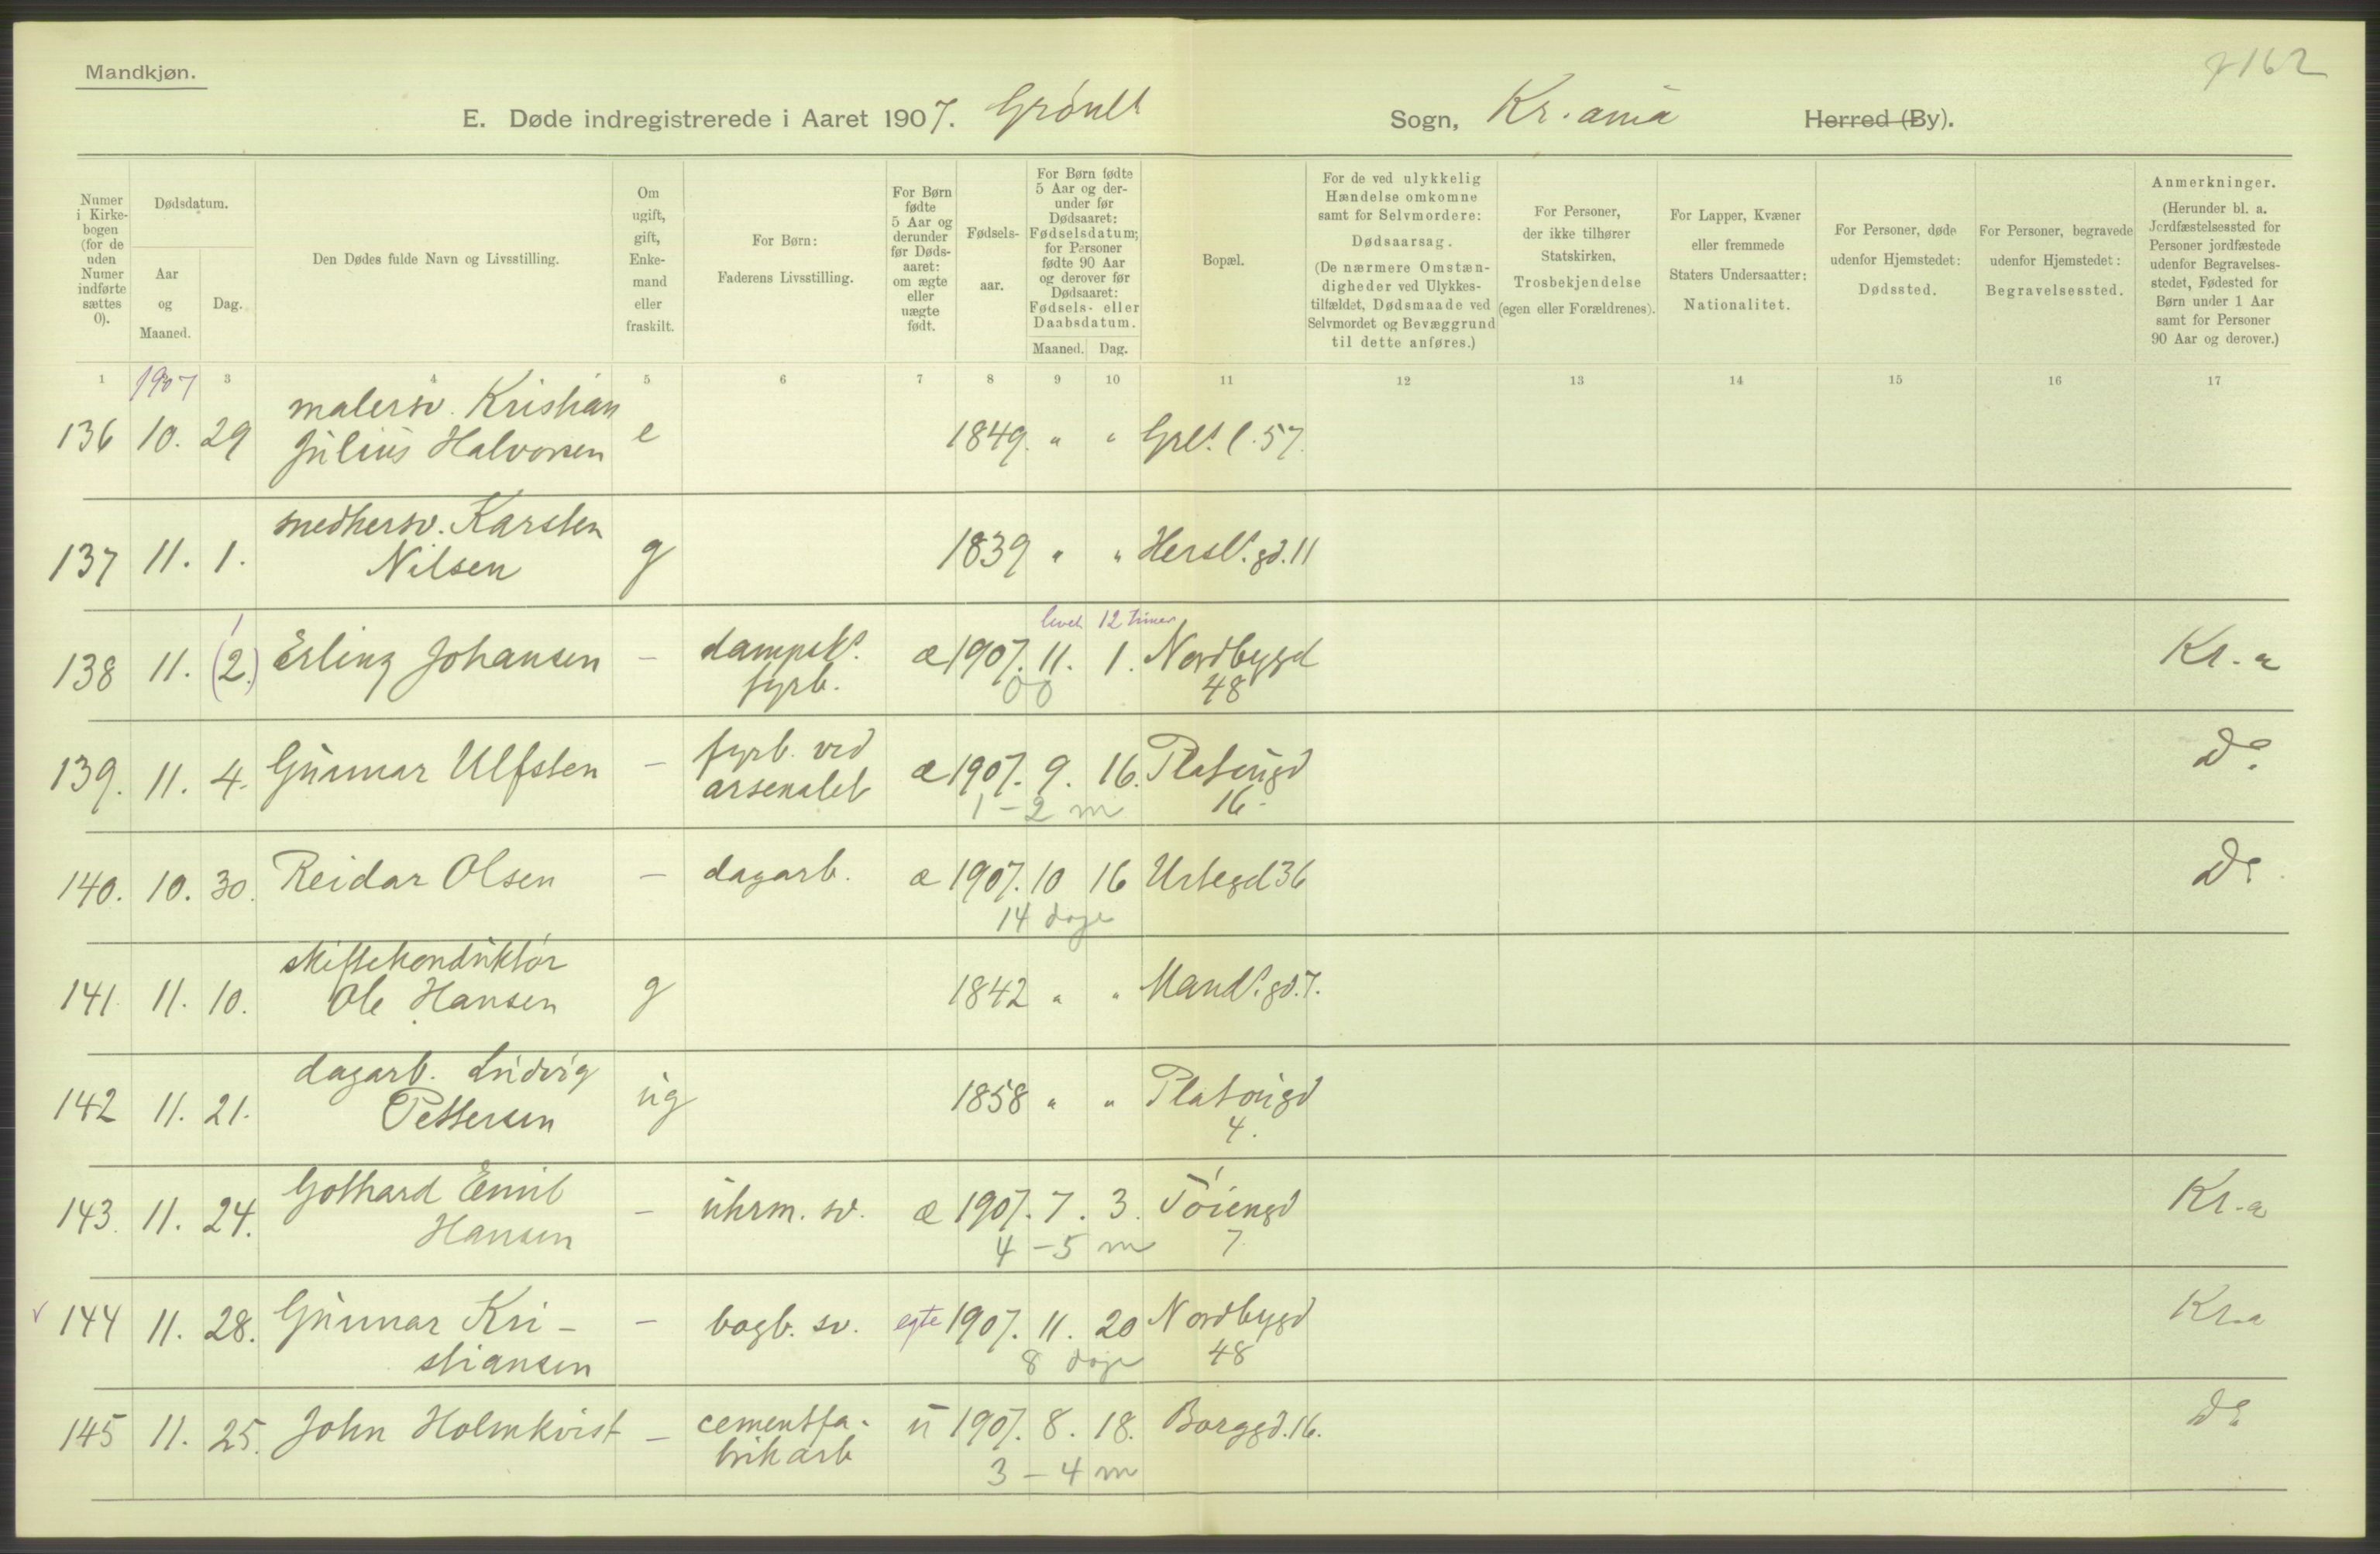 Mandkjøn.
162
E. Døde indregistrerede i Aaret 1907. Grönl. Sogn, Kr.ania Herred (By).
Numer i Kirkebogen (for de uden Numer indførte sættes 0).
Dødsdatum.
Aar og Maaned.
Dag.
Den Dødes fulde Navn og Livsstilling.
Om ugift, gift, Enkemand eller fraskilt.
For Børn: Faderens Livsstilling.
For Børn fødte 5 Aar og derunder før Dødsaaret: om ægte eller uægte født.
Fødselsaar.
For Børn fødte 5 Aar og derunder før Dødsaaret: Fødselsdatum; for Personer fødte 90 Aar og derover før Dødsaaret: Fødsels- eller Daabsdatum.
Maaned. Dag.
Bopæl.
For de ved ulykkelig Hændelse omkomne samt for Selvmordere: Dødsaarsag. (De nærmere Omstændigheder ved Ulykkestilfældet, Dødsmaade ved Selvmordet og Bevæggrund til dette anføres.)
For Personer, der ikke tilhører Statskirken, Trosbekjendelse (egen eller Forældrenes).
For Lapper, Kvæner eller fremmede Staters Undersaatter: Nationalitet.
For Personer, døde udenfor Hjemstedet: Dødssted.
For Personer, begravede udenfor Hjemstedet: Begravelsessted.
Anmerkninger. (Herunder bl. a. Jordfæstelsessted for Personer jordfæstede udenfor Begravelsesstedet, Fødested for Børn under 1 Aar samt for Personer 90 Aar og derover.)
1 3 4 5 6 7 8 9 10 11 12 13 14 15 16 17
1907
malersv. Kristian
136 10. 29 Julius Halvorsen e 1849. " " Grl. l. 57.
smedhersv. Karsten
137 11. 1. Nilsen g 1839 " " Hersl. gd. 11
1 levet 12 timer
138 11. (2.) Erling Johansen - dampsk. æ 1907. 11. 1. Nordbygd Kr.a
fyrb. 00 48
fyrb. ved
139. 11. 4. Gunnar Ulfsten - arsenalet æ 1907. 9. 16. Platougd Do.
1-2 m 16.
140. 10. 30. Reidar Olsen - dagarb. æ 1907. 10 16 Urtegd 36 Do.
14 dage
skiftekonduktör
141 11. 10. Ole Hansen g 1842 " " Mand. gd. 7.
dagarb. Ludvig
142 11. 21. Pettersen ug 1858 " " Platougd
4.
Gothard Emil
143. 11. 24. Hansen - uhrm. sv. æ 1907. 7. 3. Töiengd Kr.a
4-5 m 7
144 11. 28. Gunnar Kri- - bogb. sv. egte 1907. 11. 20 Nordbygd Kr.a
stiansen 8 dage 48
145 11. 25. John Holmkvist - cementfa- u 1907. 8. 18. Borggd. 16. Do.
brikarb 3-4 m